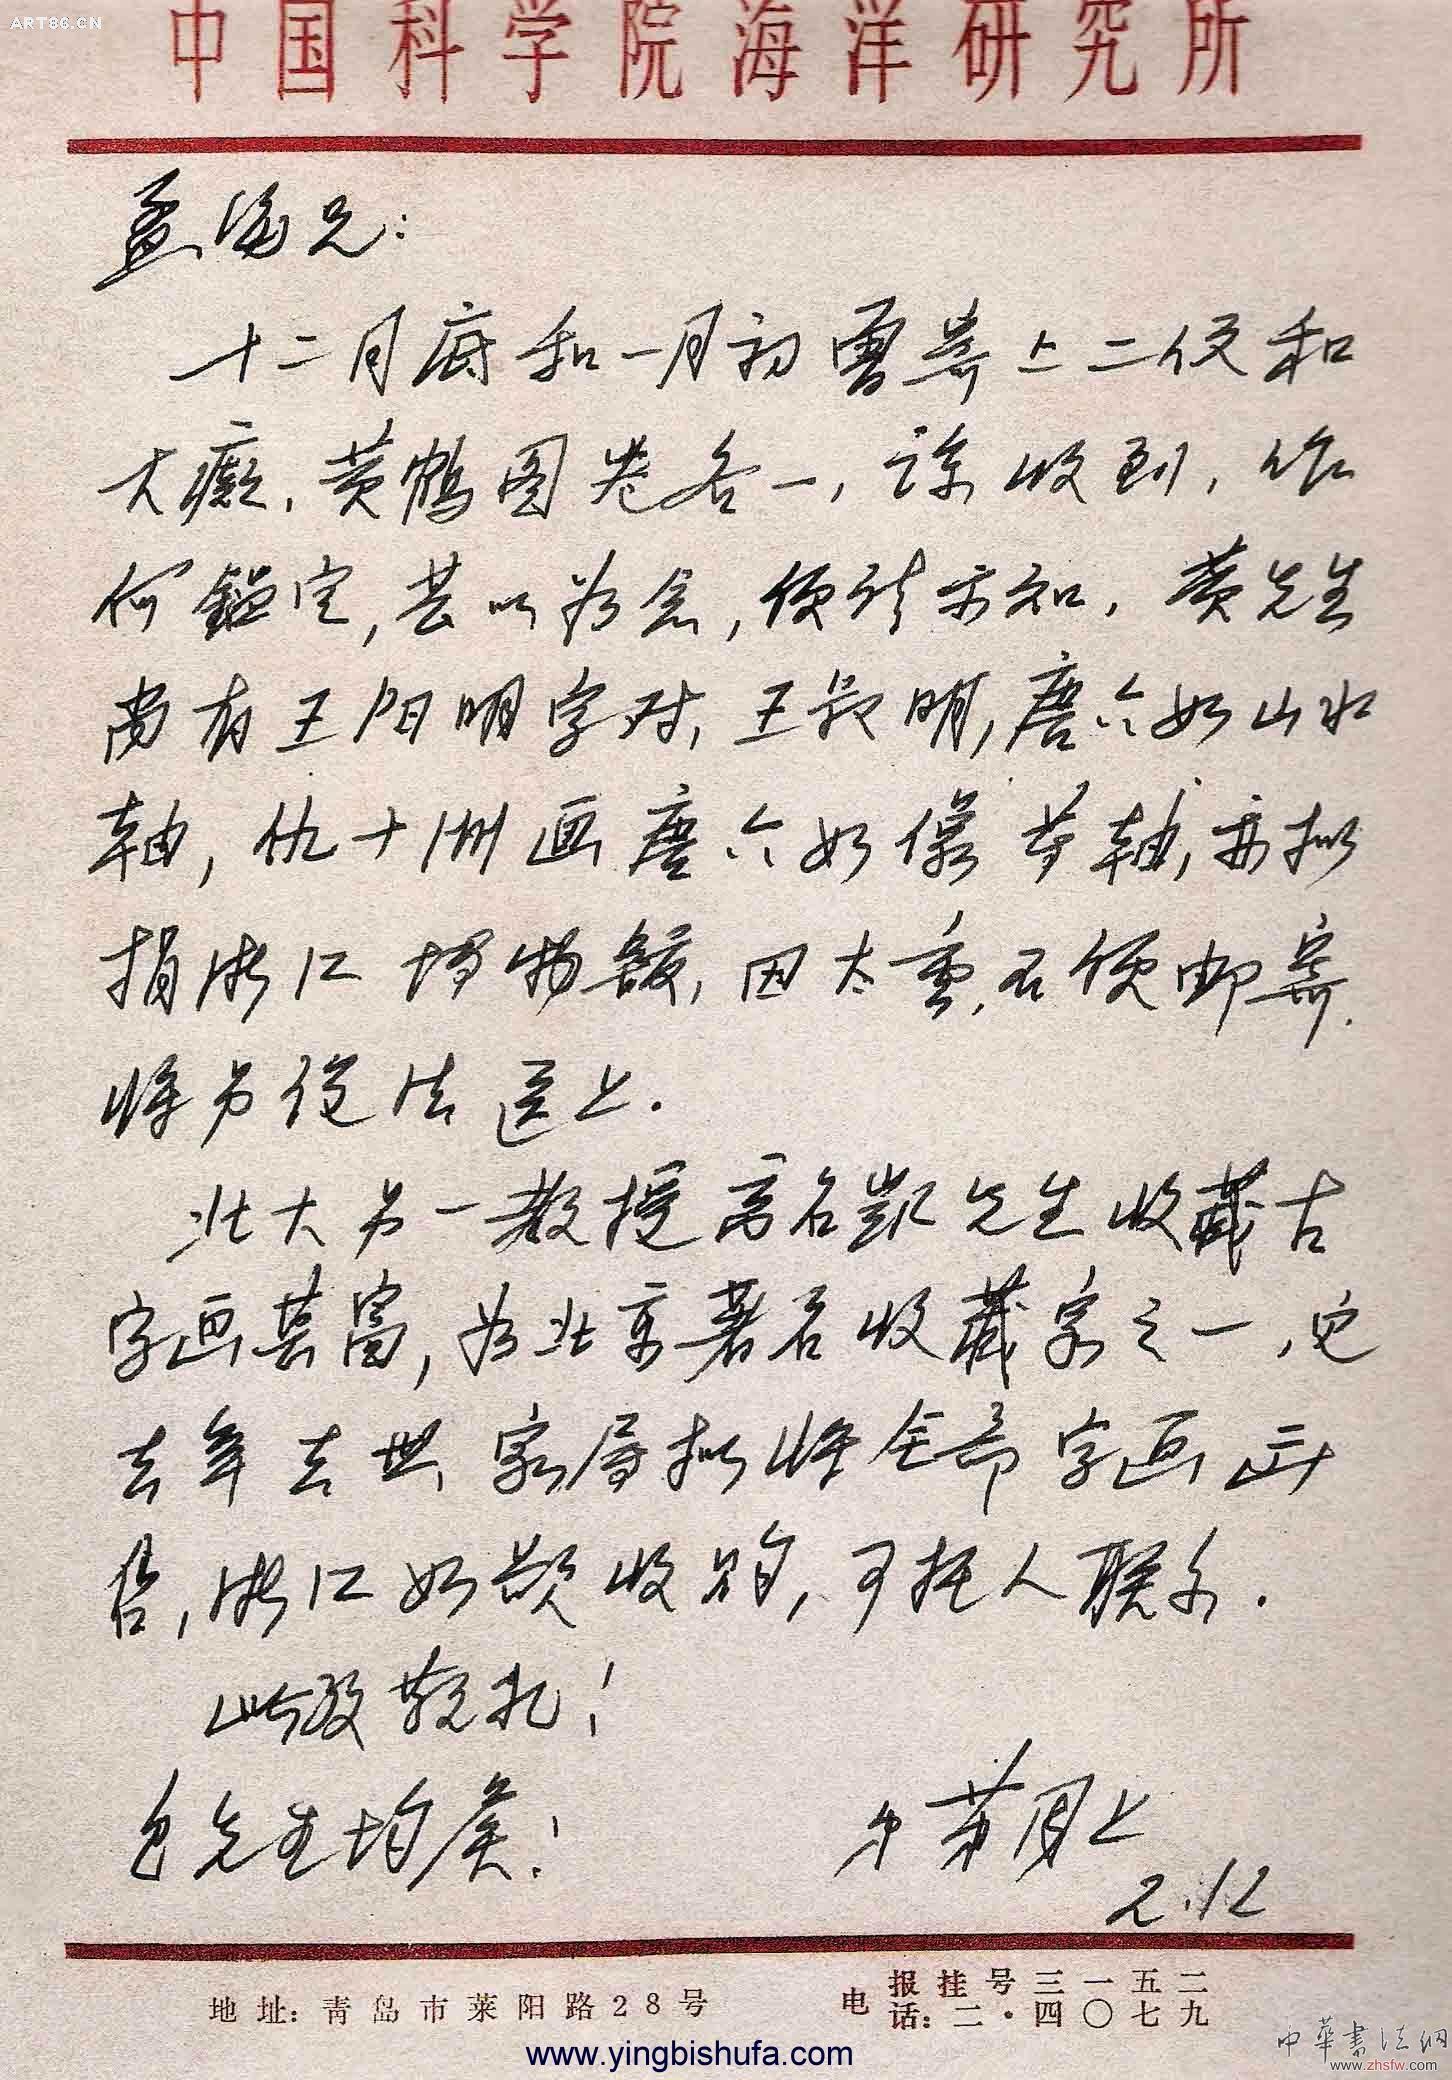 ART86.CN
中国科学院海洋研究所
孟海兄：
十二月底和一月初曾寄上二信和
大癡、黄鹤图卷各一，谅收到，如
何鑑定，甚以为念，便请示知。黄先生
尚有王阳明字对，王 明，唐六如山水
轴，仇十洲画唐六如像等轴，亦拟
捐浙江博物馆，因太重，不便邮寄，
将另设法送上．
北大另一教授高名凯先生收藏古
字画甚富，为北京著名收藏家之一，他
去年去世，家属拟将全部字画出
售，浙江如欲收购，可托人联系．
此致敬礼！
包先生均候！
弟 上
2.12
地址：青岛市莱阳路28号
电报挂号三一五二
电话：二·四〇七九
www.yingbishufa.com
中華書法網
www.zhsfw.com